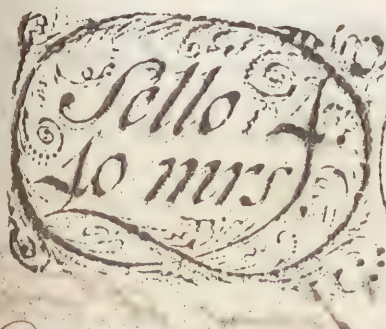 Sello 4º
40 mrs